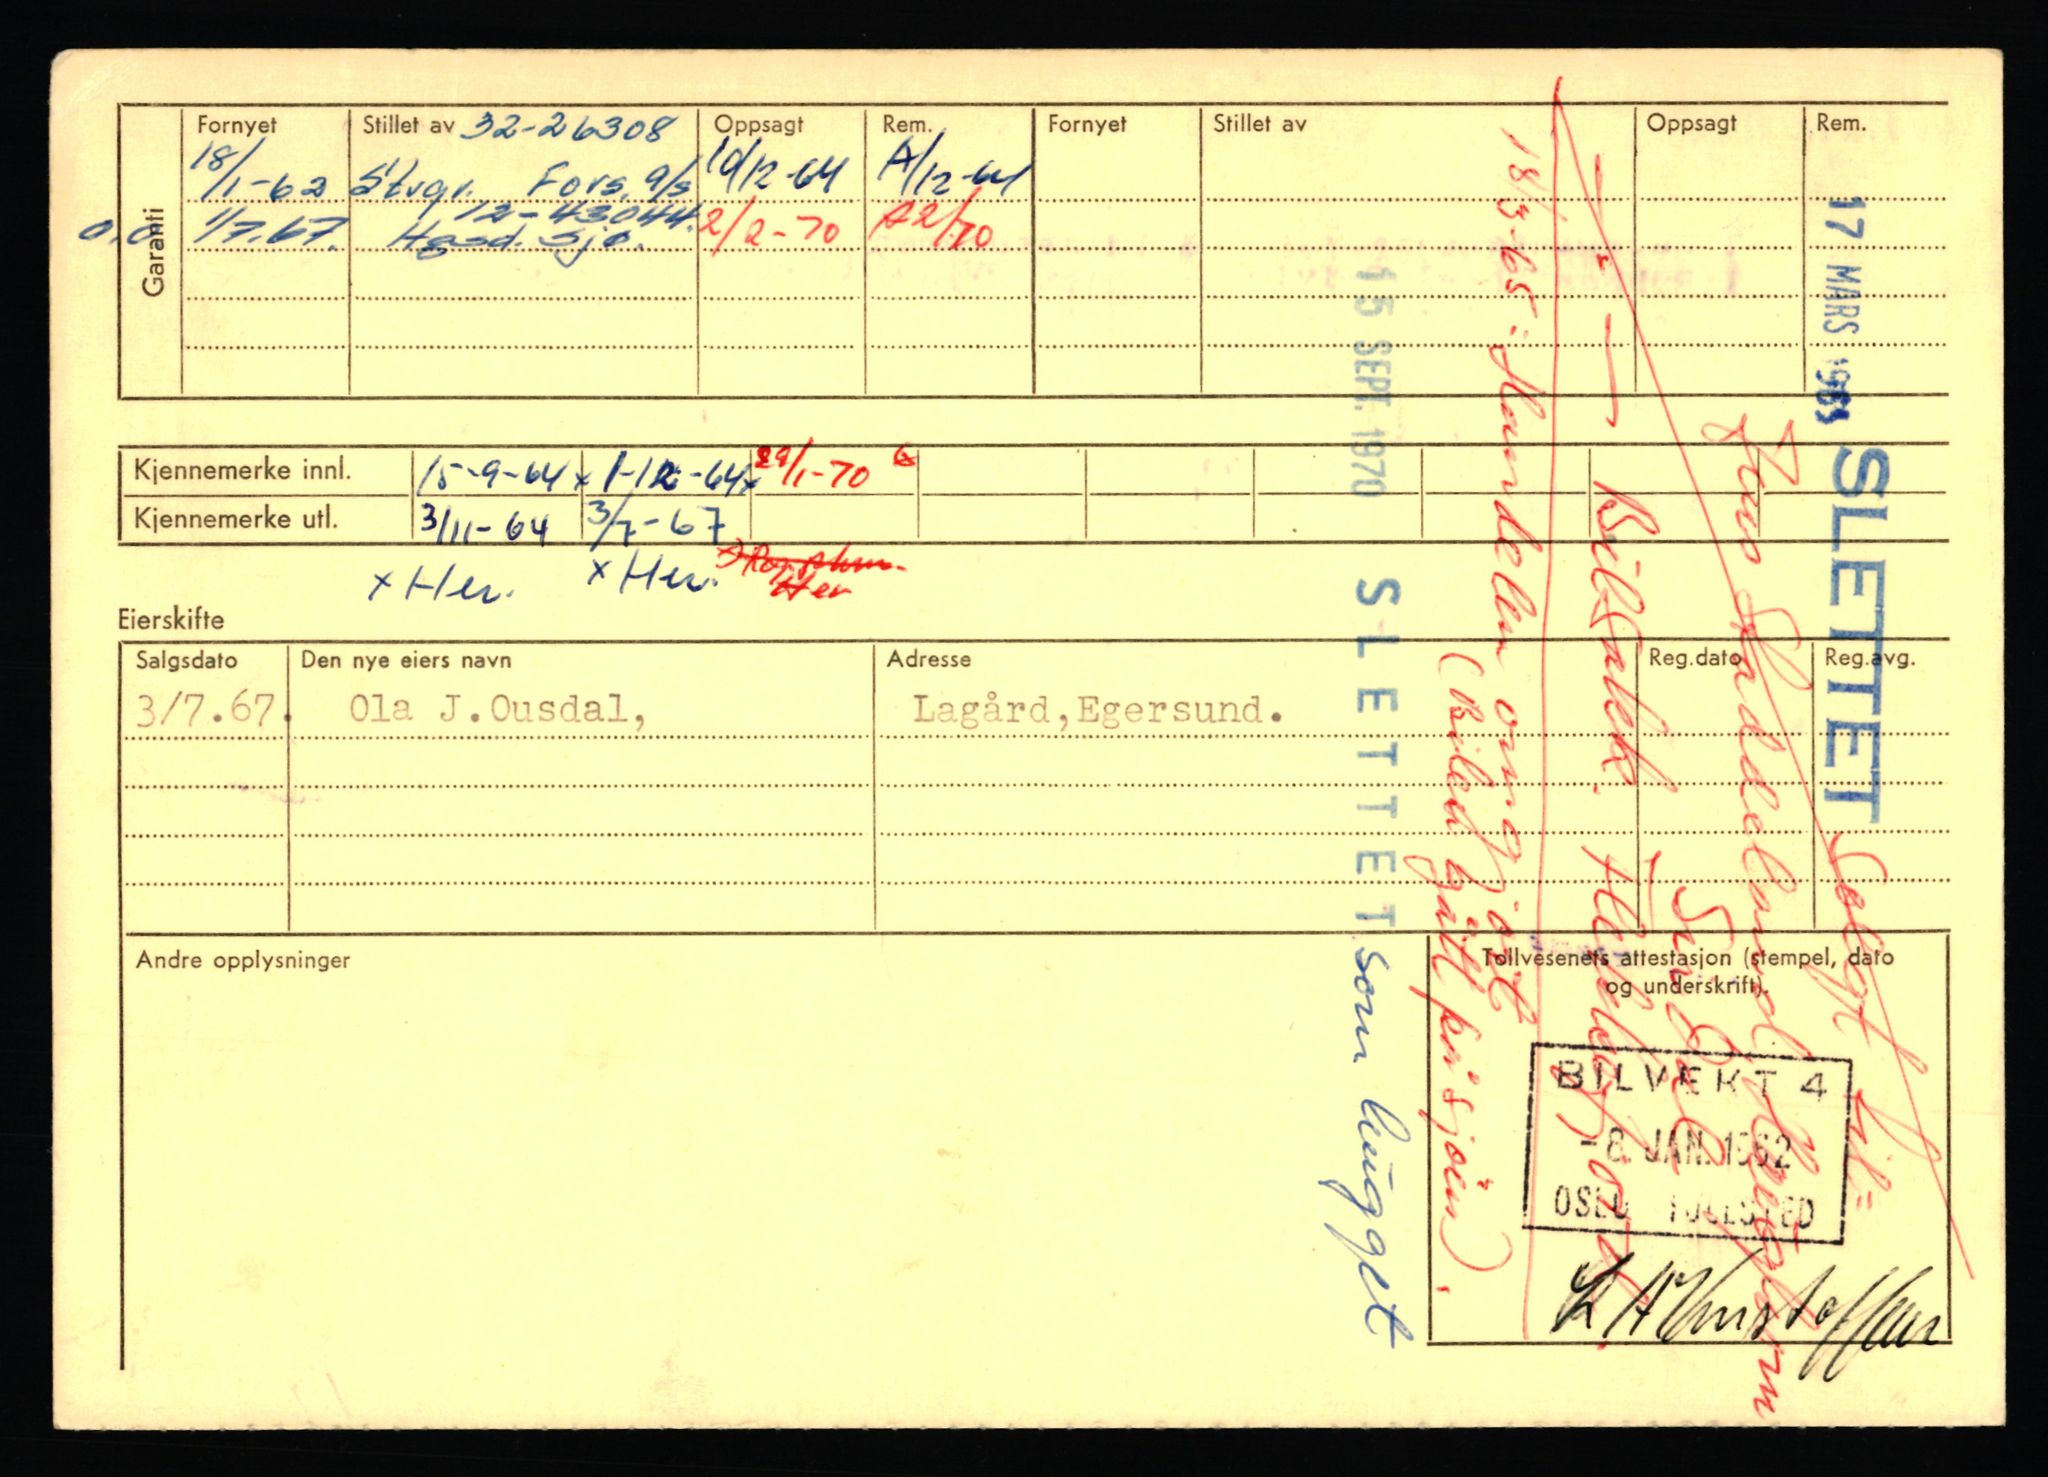 Garanti
Fornyet Stillet av 32-26308 Oppsagt Rem. Fornyet Stillet av Oppsagt Rem.
18/1-62 Stvgr. Fors. a/s 10/12-64 A/12-64
12-43044.
1/7.67. Hgsd. Sjø. 2/2-70 A2/70
Kjennemerke innl. 15-9-64 x 1-12-64 x 29/1-70
Kjennemerke utl. 3/11-64 3/7-67
x Her. x Her. Her
Eierskifte
Salgsdato Den nye eiers navn Adresse Reg.dato Reg.avg.
3/7.67. Ola J.Ousdal, Lagård,Egersund.
Andre opplysninger
Tollvesenets attestasjon (stempel, dato
og underskrift).
BILVEKT 4
-8. JAN. 1962
OSLO TOLLSTED
17 MARS 1965 SLETTET Solgt til:
Bilsalek.
18/3-65: Handelen omgjort
(Bilen gått för sjöen).
15 SEPT. 1970 SLETTET som hugget